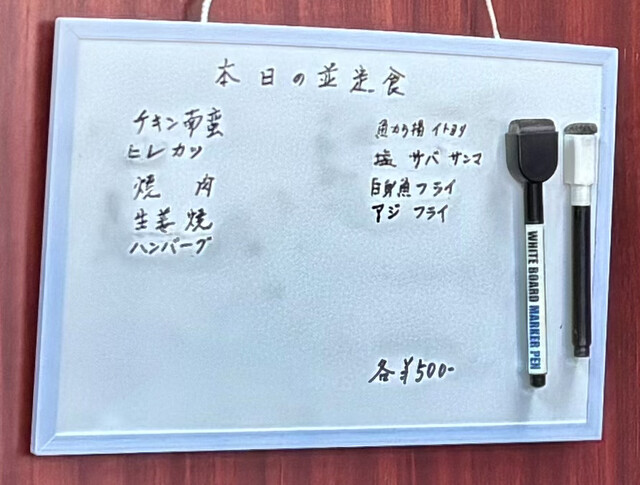 本日の並定食
チキン南蛮
ヒレカツ
焼 肉
生姜焼
ハンバーグ
魚から揚 イトヨリ
塩 サバ サンマ
白身魚フライ
アジ フライ
各¥500-
WHITE BOARD MARKER PEN